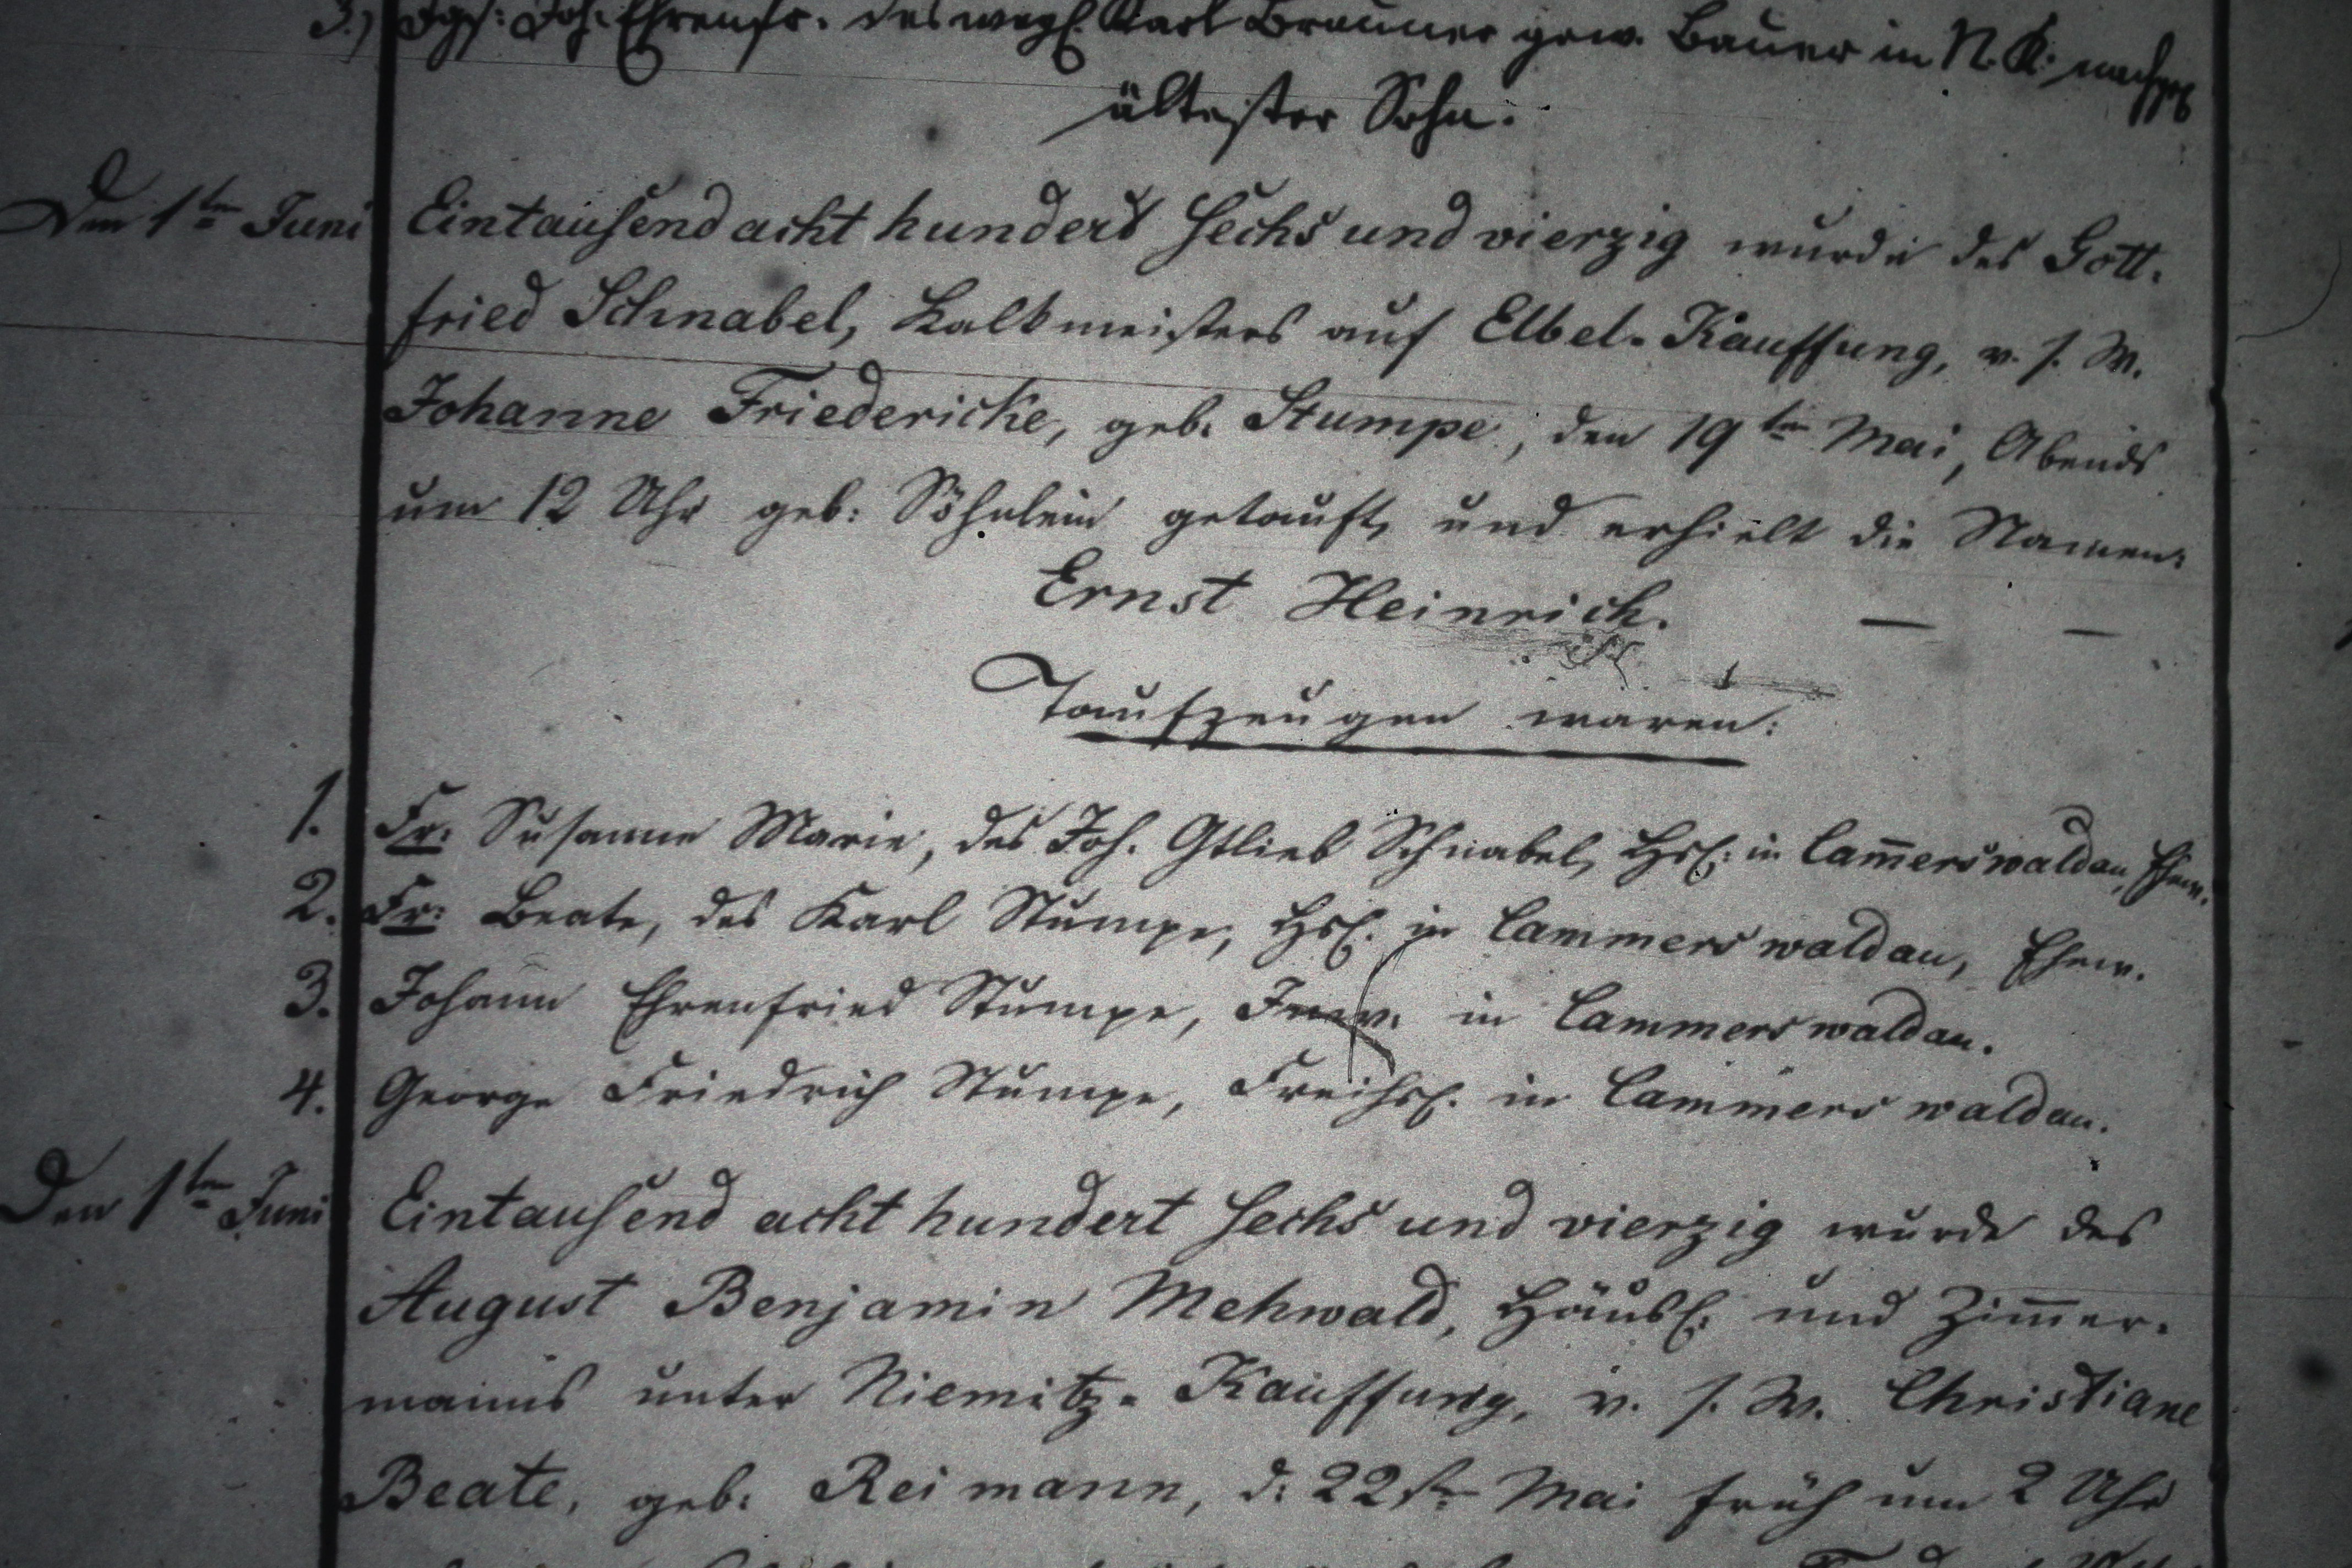 3.) Jgs: Joh. Ehrenfr. des weyl. Karl Brauner gew. Bauer in N. K. nachgel.
ältester Sohn.
Den 1ten Juni Eintausend acht hundert sechs und vierzig wurde des Gott-
fried Schnabel, Kalkmeisters auf Elbel-Kauffung, v. s. W.
Johanne Friedericke, geb. Stumpe, den 19ten Mai, Abends
um 12 Uhr geb: Söhnlein getauft, und erhielt die Namen:
Ernst Heinrich. — —
Taufzeugen waren:
1. Fr: Susanne Marie, des Joh. Gtlieb Schnabel, Hsl: in Cam̅erswaldau, Ehew.
2. Fr: Beate, des Karl Stumpe, Hsl. in Cammerswaldau, Ehew.
3. Johann Ehrenfried Stumpe, Inw. in Cammerswaldau.
4. George Friedrich Stumpe, Freihsl. in Cammerswaldau.
Den 1ten Juni Eintausend acht hundert sechs und vierzig wurde des
August Benjamin Mehwald, Häusl: und Zim̅er-
manns unter Niemitz-Kauffung, v. s. W. Christiane
Beate, geb: Reimann, d: 22st. Mai früh um 2 Uhr